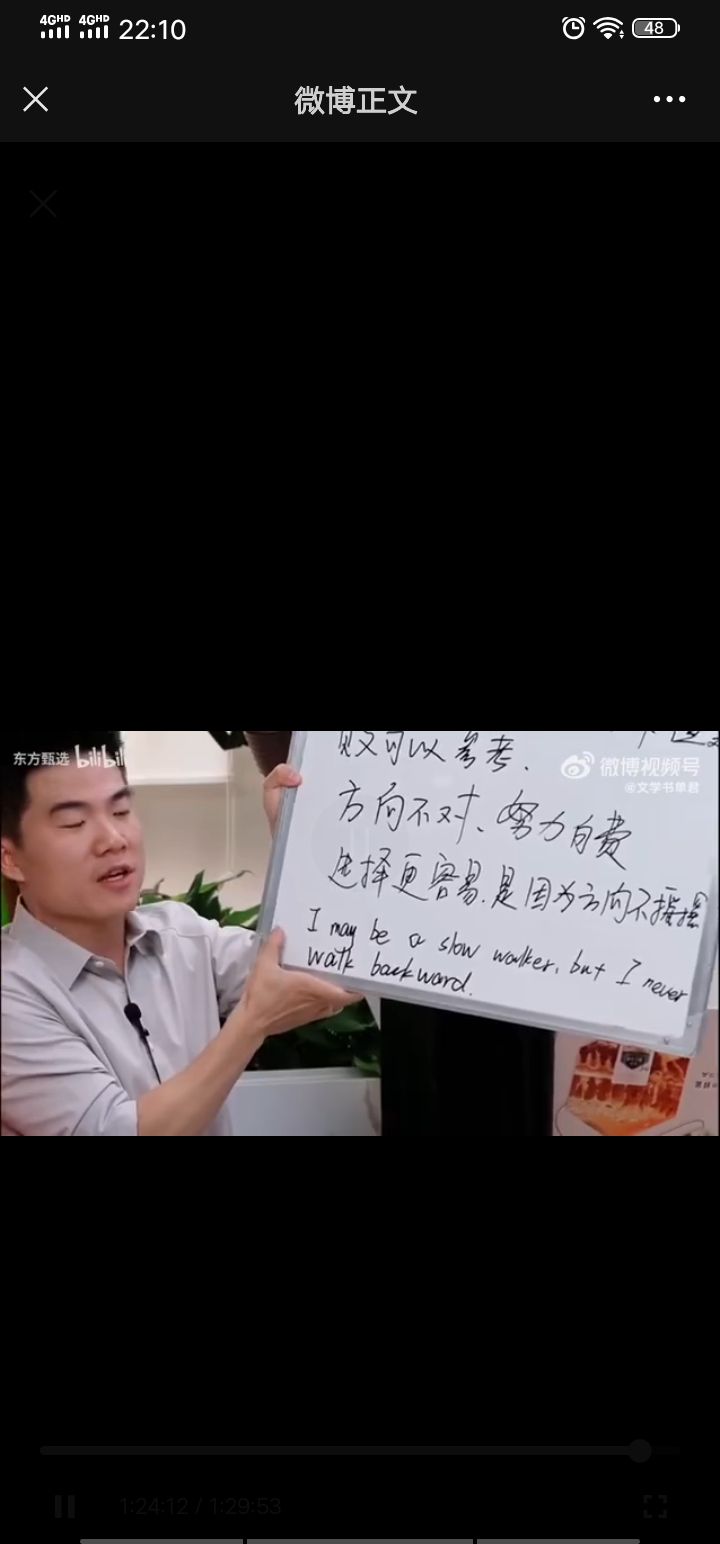 4GHD 4GHD 22:10 48
微博正文
东方甄选 bilibili
微博视频号
@文学书单君
可以参考.
方向不对、努力白费
选择更容易.是因为方向不摇摆
I may be a slow walker, but I never
walk backward.
1:24:12 / 1:29:53